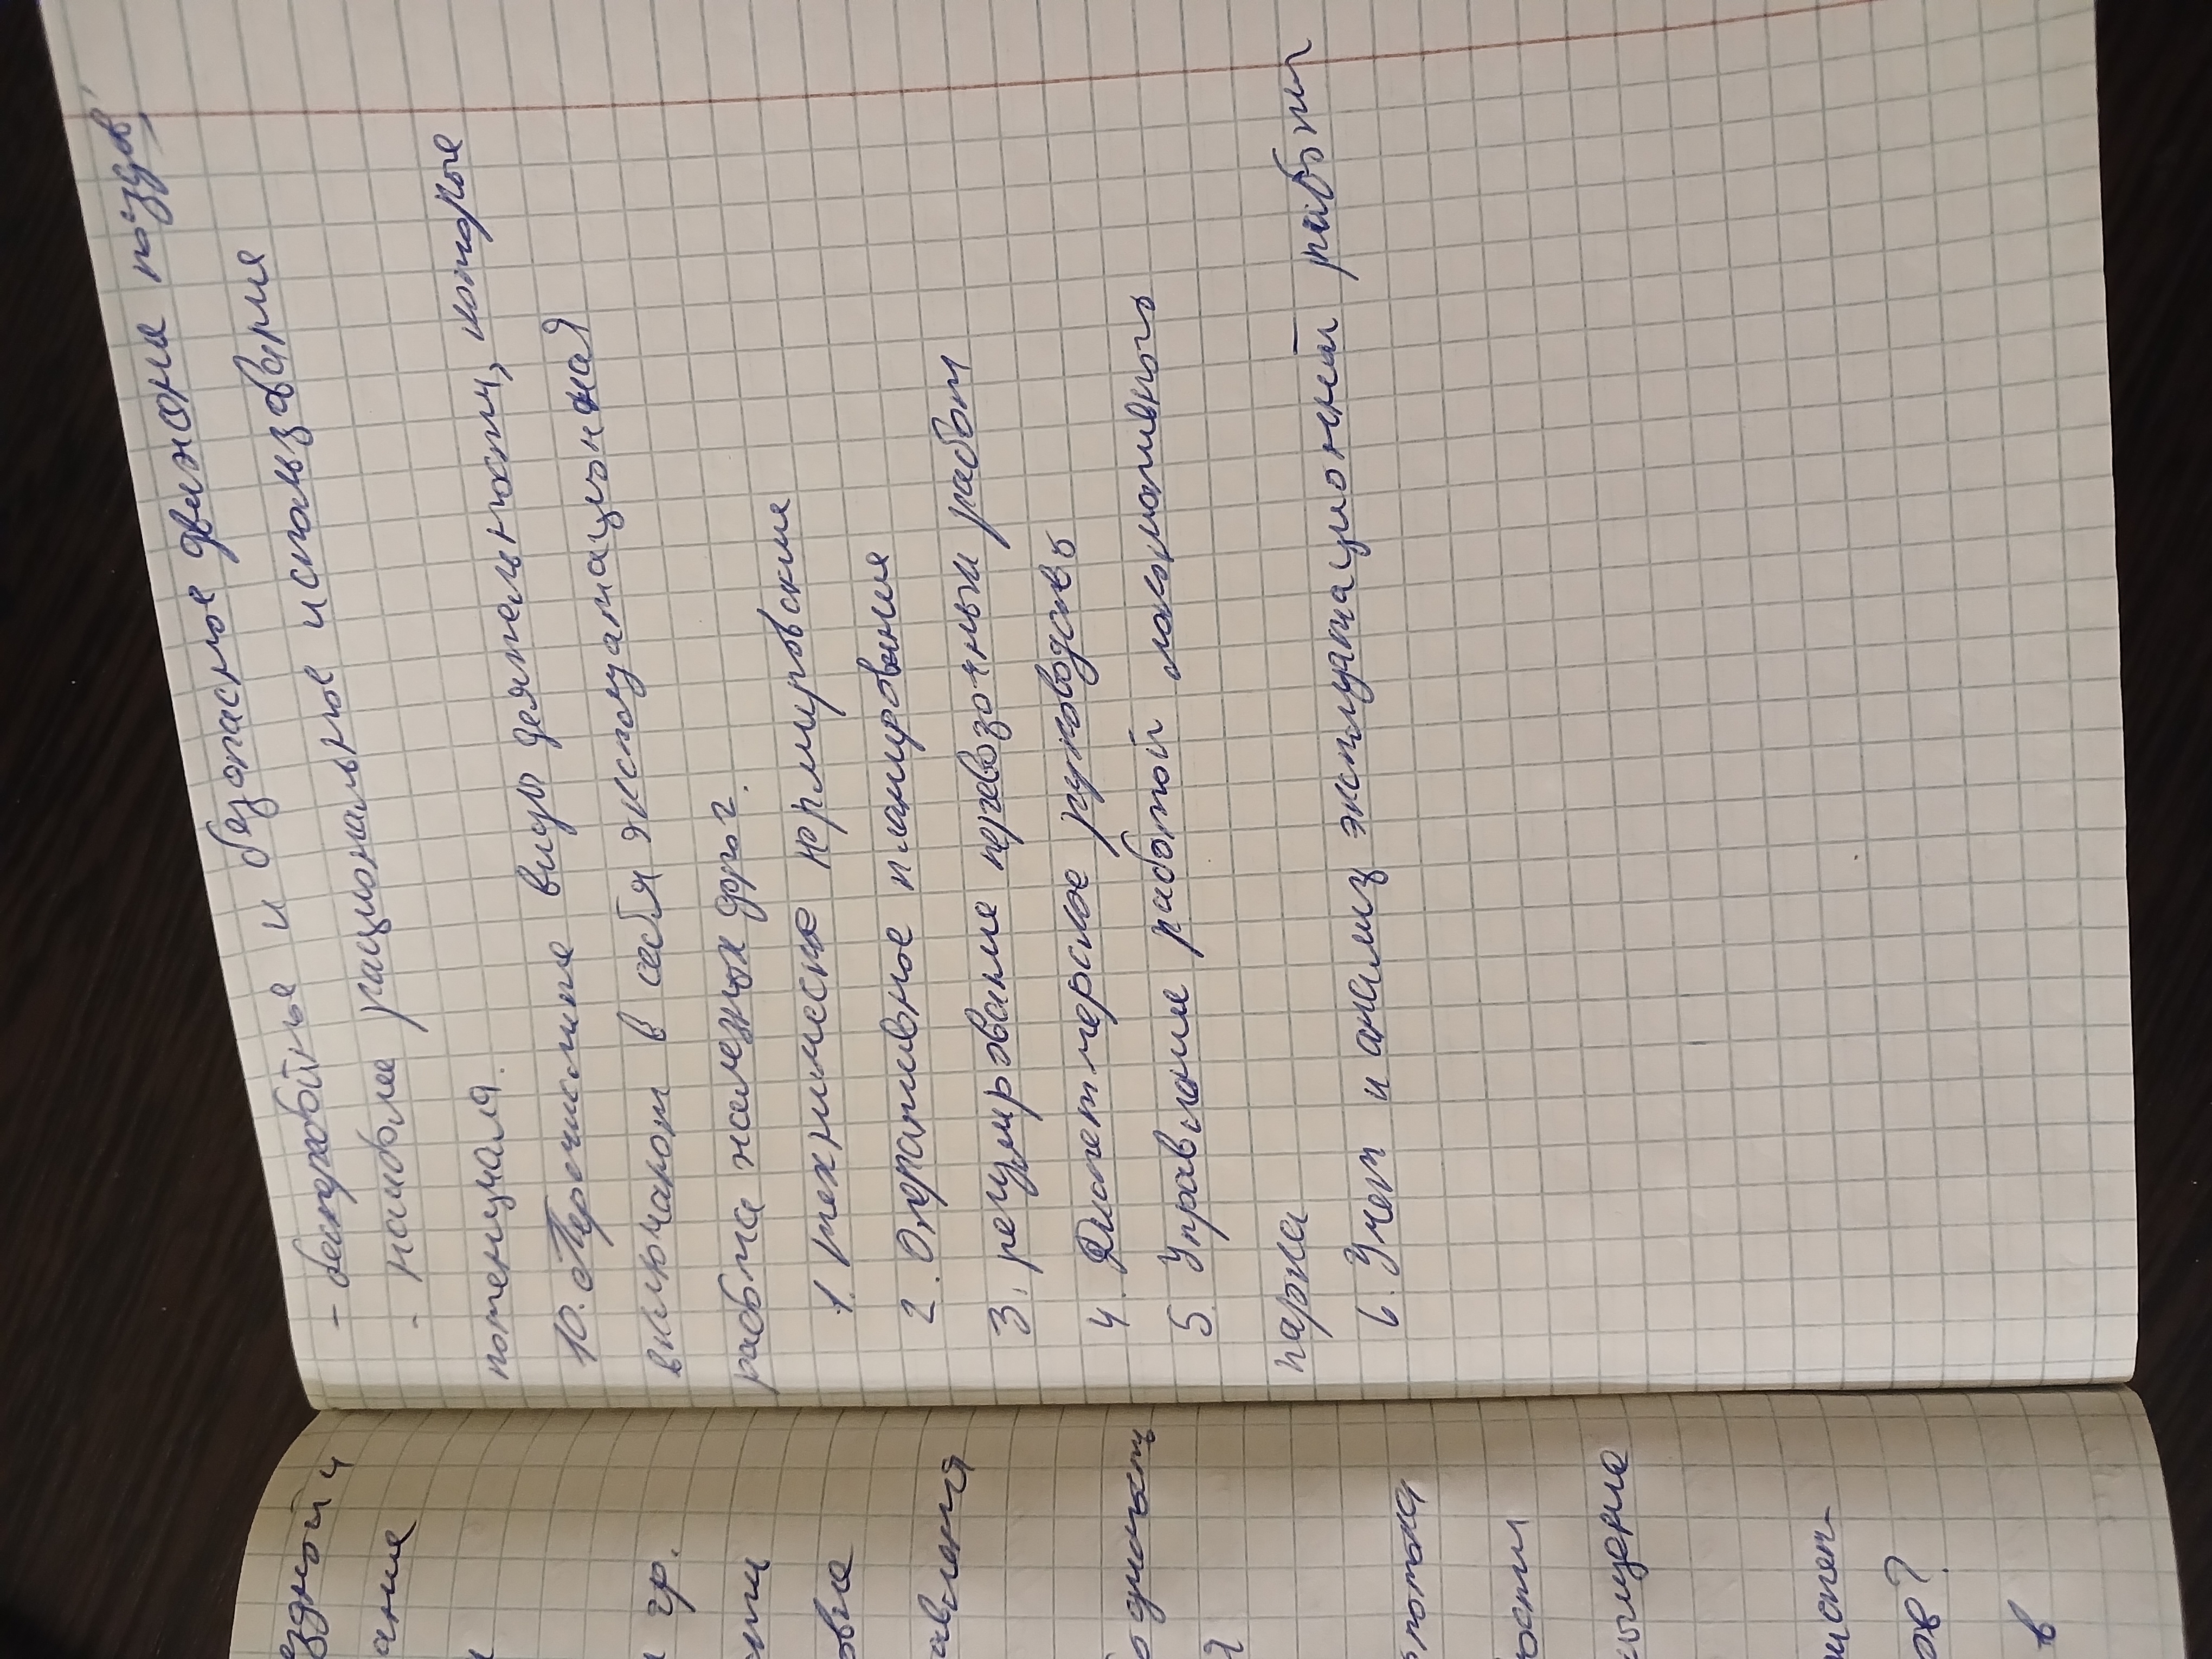 - бесперебойные и безопасное движоне поздв,
- наиболее рациональное использваря
потенцчала.
10. Перечислите виды деятельности, которые
включают в себя эксплуатационная
работа железных дорог.
1. техническое нормировские
2. Оперативное планирования
3. регулирзвание перевозочным работ
4. Диспетчерское руководство
5. Управление работой локомотивного
парка
6. Учет и анализ эксплуатационний работы
ездной и
ание
гр.
овые
авления
одность
потока
ости
ов?
в